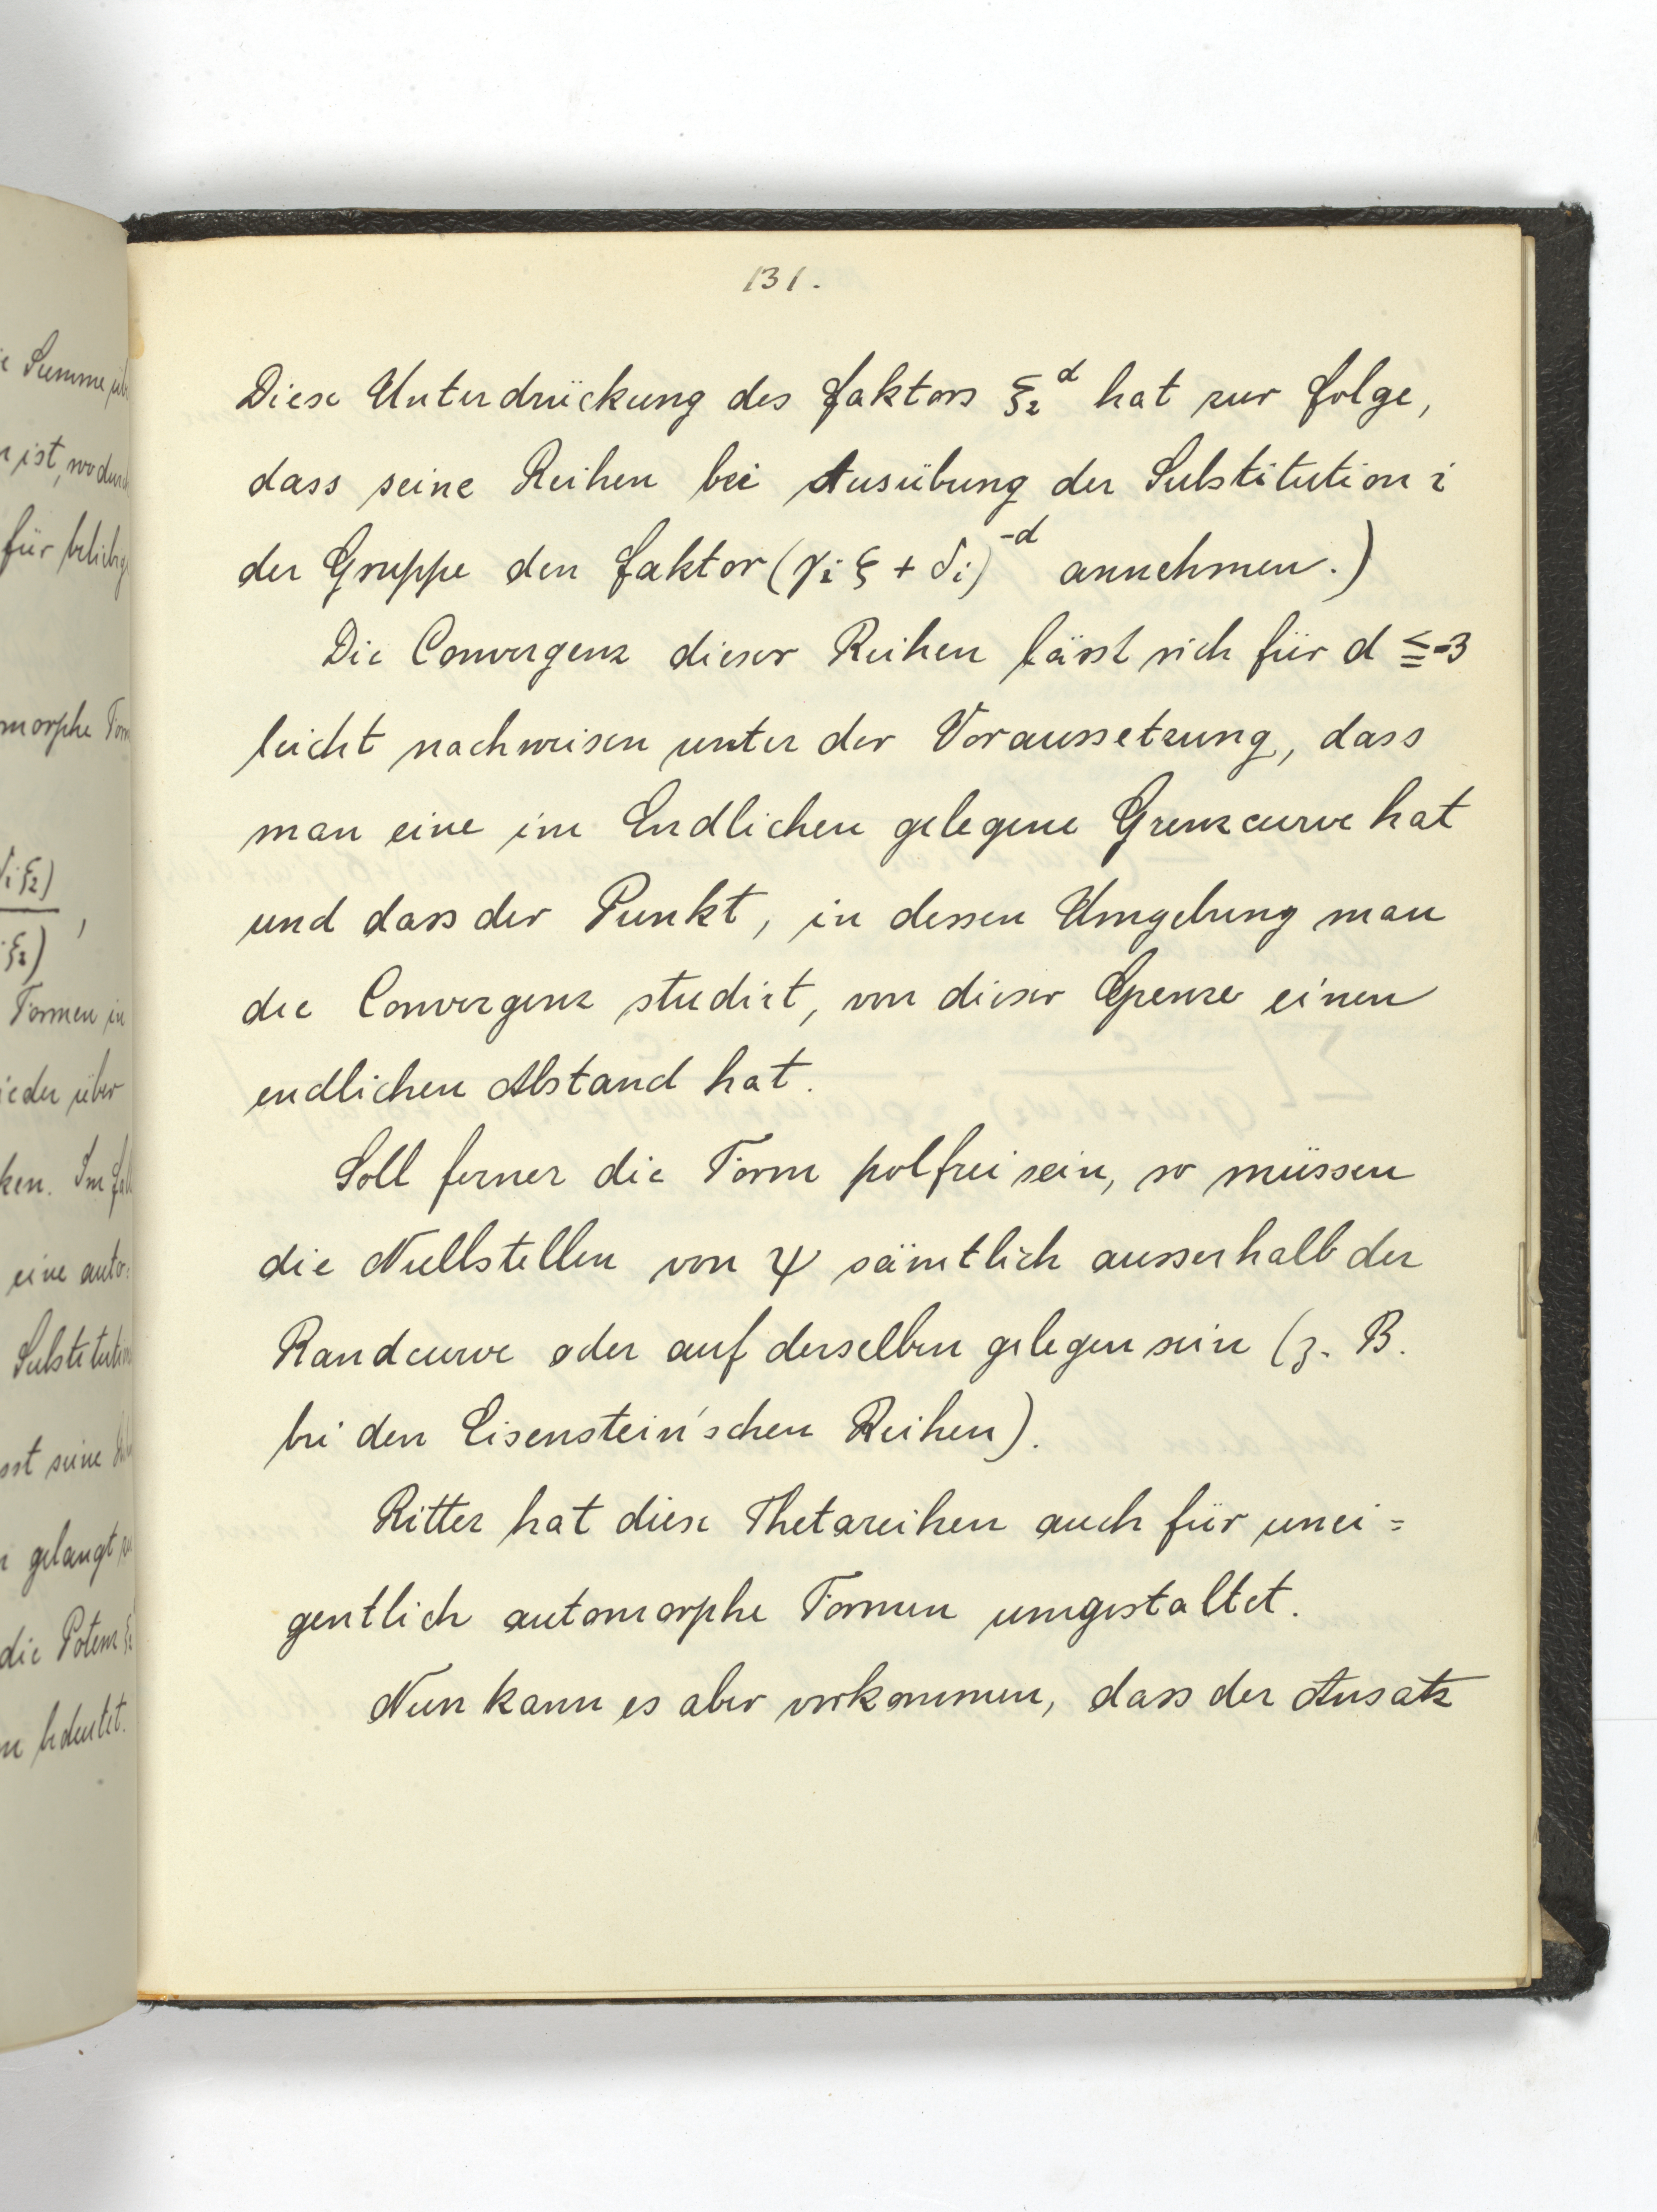 131.
Diese Unterdrückung des Faktors ξ₂ᵈ hat zur Folge,
dass seine Reihen bei Ausübung der Substitution i
der Gruppe den Faktor (γᵢ ξ + δᵢ)⁻ᵈ annehmen.)
Die Convergenz dieser Reihen lässt sich für d ≦ -3
leicht nachweisen unter der Voraussetzung, dass
man eine im Endlichen gelegene Grenzcurve hat
und dass der Punkt, in dessen Umgebung man
die Convergenz studirt, von dieser Grenze einen
endlichen Abstand hat.
Soll ferner die Form polfrei sein, so müssen
die Nullstellen von ψ sämtlich ausserhalb der
Randcurve oder auf derselben gelegen sein (z. B.
bei den Eisenstein'schen Reihen).
Ritter hat diese Thetareihen auch für unei=
gentlich automorphe Formen umgestaltet.
Nun kann es aber vorkommen, dass der Ansatz